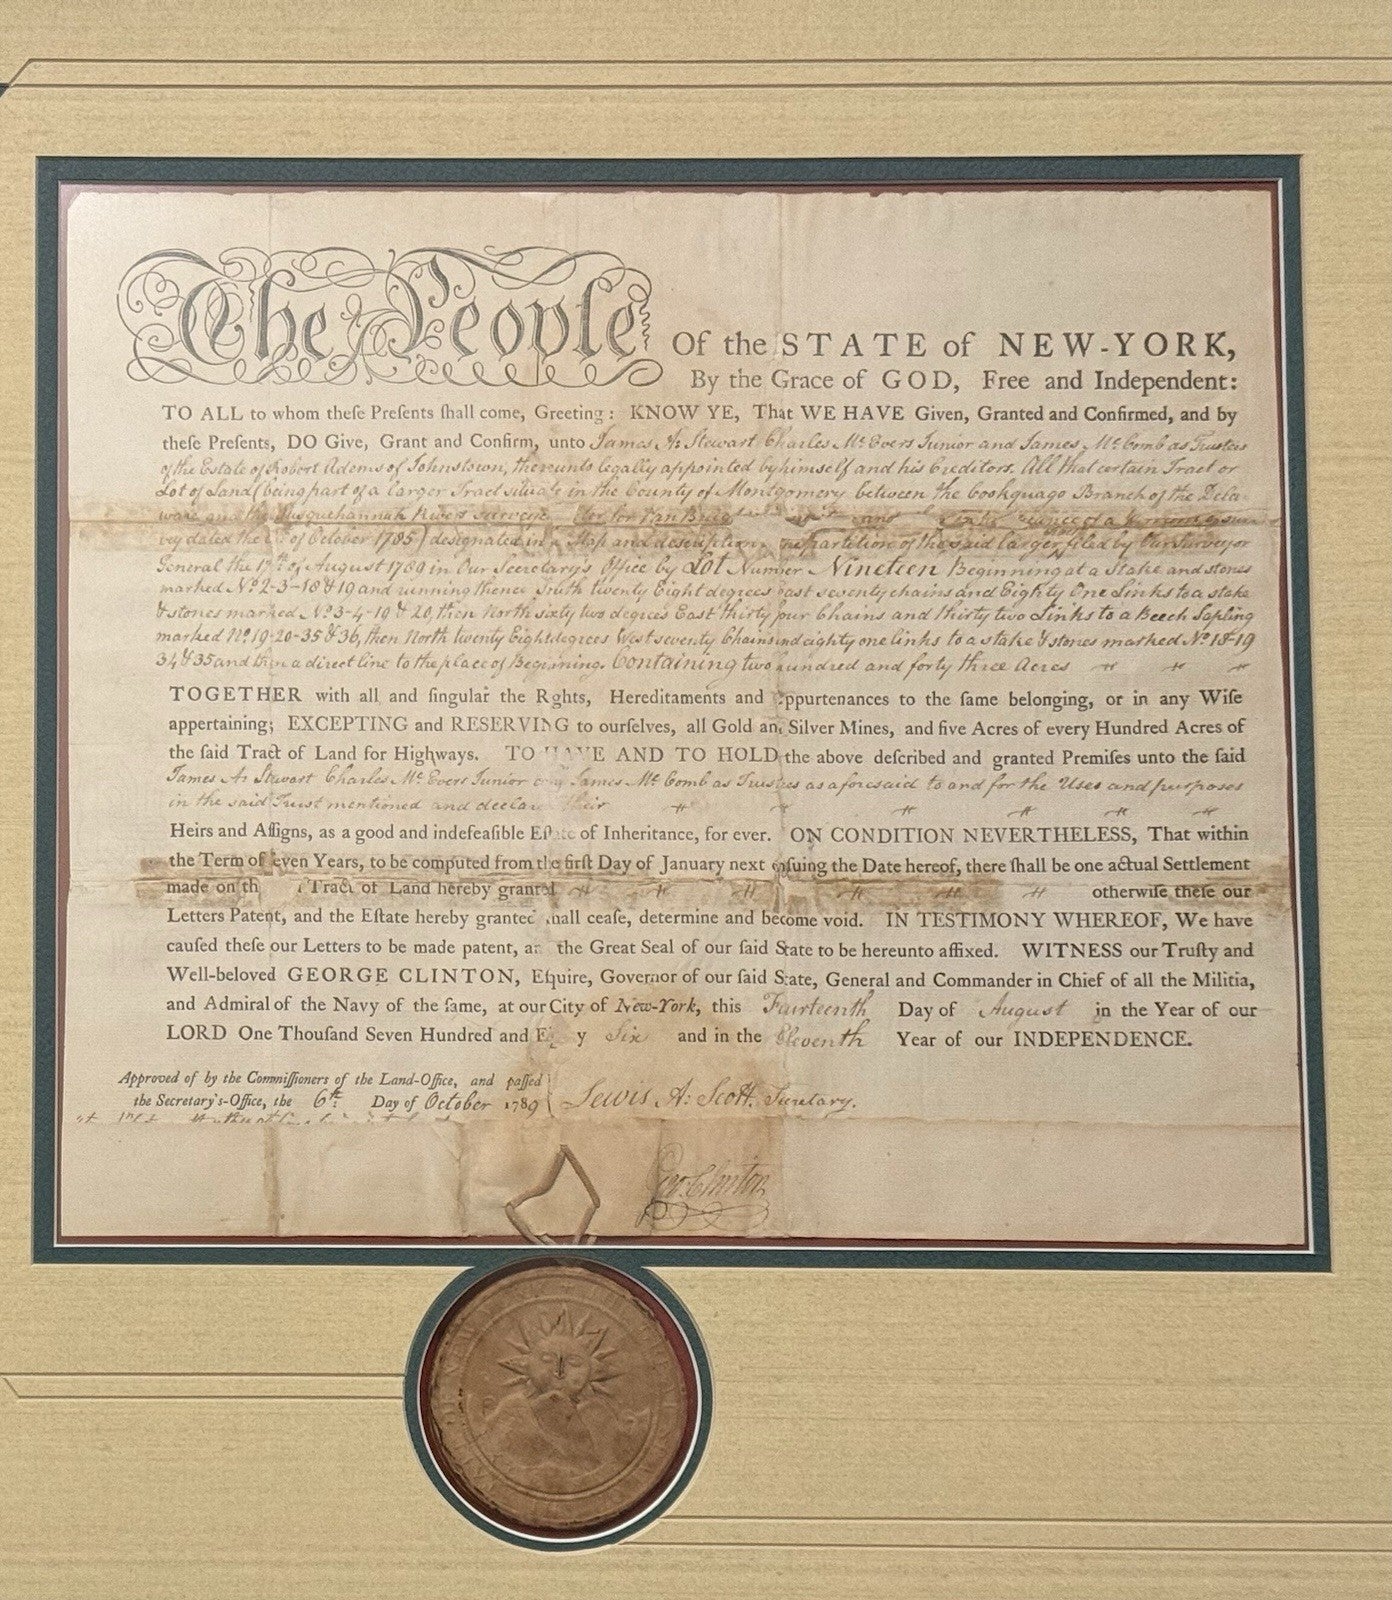 The People Of the STATE of NEW-YORK,
By the Grace of GOD, Free and Independent:
TO ALL to whom theſe Preſents ſhall come, Greeting: KNOW YE, That WE HAVE Given, Granted and Confirmed, and by
theſe Preſents, DO Give, Grant and Confirm, unto James A: Stewart Charles Mc Evers Junior and James Mc Comb as Trustees
of the Estate of Robert Adems of Johnstown, thereunto legally appointed by himself and his Creditors. All that certain Tract or
Lot of Land (being part of a larger Tract situate in the County of Montgomery between the Cookquago Branch of the Dela-
ware and the Susquehannah Rivers
vey dated the of October 1785) designated in a Map and description partition of the said larger filed by Our Surveyor
General the 17th of August 1789 in Our Secretary's Office by Lot Number Nineteen Beginning at a Stake and stones
marked No. 2-3-18 & 19 and running thence South twenty Eight degrees East seventy chains and Eighty One Links to a stake
& stones marked No. 3-4-19 & 20, then North sixty two degrees East thirty four Chains and thirty two Links to a Beech Sapling
marked No. 19-20-35 & 36, then North twenty Eight degrees West seventy Chains and eighty one links to a stake & stones marked No. 18-19
34 & 35 and then a direct line to the place of Beginning. Containing two hundred and forty three Acres
TOGETHER with all and ſingular the R ghts, Hereditaments and ppurtenances to the ſame belonging, or in any Wiſe
appertaining; EXCEPTING and RESERVING to ourſelves, all Gold an Silver Mines, and five Acres of every Hundred Acres of
the ſaid Tract of Land for Highways. TO HAVE AND TO HOLD the above deſcribed and granted Premiſes unto the ſaid
James A: Stewart Charles Mc Evers Junior and James Mc Comb as Trustees as aforesaid to and for the Uses and purposes
in the said Trust mentioned and declar their
Heirs and Aſſigns, as a good and indefeaſible Eſtate of Inheritance, for ever. ON CONDITION NEVERTHELESS, That within
the Term of ſeven Years, to be computed from the firſt Day of January next enſuing the Date hereof, there ſhall be one actual Settlement
made on th Tract of Land hereby granted otherwiſe theſe our
Letters Patent, and the Eſtate hereby granted ſhall ceaſe, determine and become void. IN TESTIMONY WHEREOF, We have
cauſed theſe our Letters to be made patent, an the Great Seal of our ſaid State to be hereunto affixed. WITNESS our Truſty and
Well-beloved GEORGE CLINTON, Eſquire, Governor of our ſaid State, General and Commander in Chief of all the Militia,
and Admiral of the Navy of the ſame, at our City of New-York, this Fourteenth Day of August in the Year of our
LORD One Thouſand Seven Hundred and Eig y Six and in the Eleventh Year of our INDEPENDENCE.
Approved of by the Commiſſioners of the Land-Office, and paſſed
the Secretary's-Office, the 6th Day of October 1789
Lewis A: Scott. Secretary.
Geo: Clinton